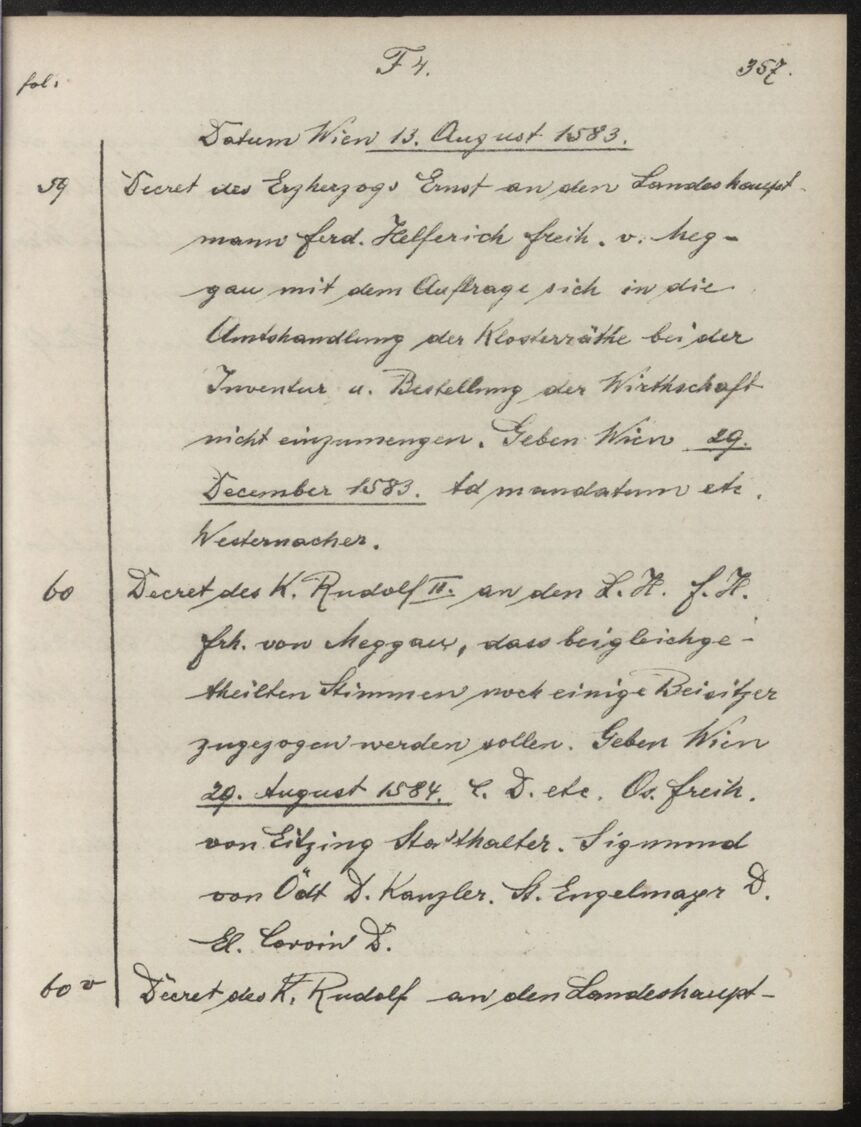 F 4. 357.
fol.
Datum Wien 13. August 1583.
59 Decret des Erzherzogs Ernst an den Landeshaupt-
mann Ferd. Helferich Freih. v. Meg-
gau mit dem Auftrage sich in die
Amtshandlung der Klosterräthe bei der
Inventur u. Bestellung der Wirthschaft
nicht einzumengen. Geben Wien 29.
December 1583. Ad mandatum etc.
Westernacher.
60 Decret des K. Rudolf II. an den L. H. F. H.
Frh. von Meggau, dass bei gleichge-
theilten Stimmen noch einige Beisitzer
zugezogen werden sollen. Geben Wien
29. August 1584. C. D. etc. Os. Freih.
von Eitzing Statthalter. Sigmund
von Ödt D. Kanzler. St. Engelmayr D.
El. Corvin D.
60 v Decret des K. Rudolf an den Landeshaupt-